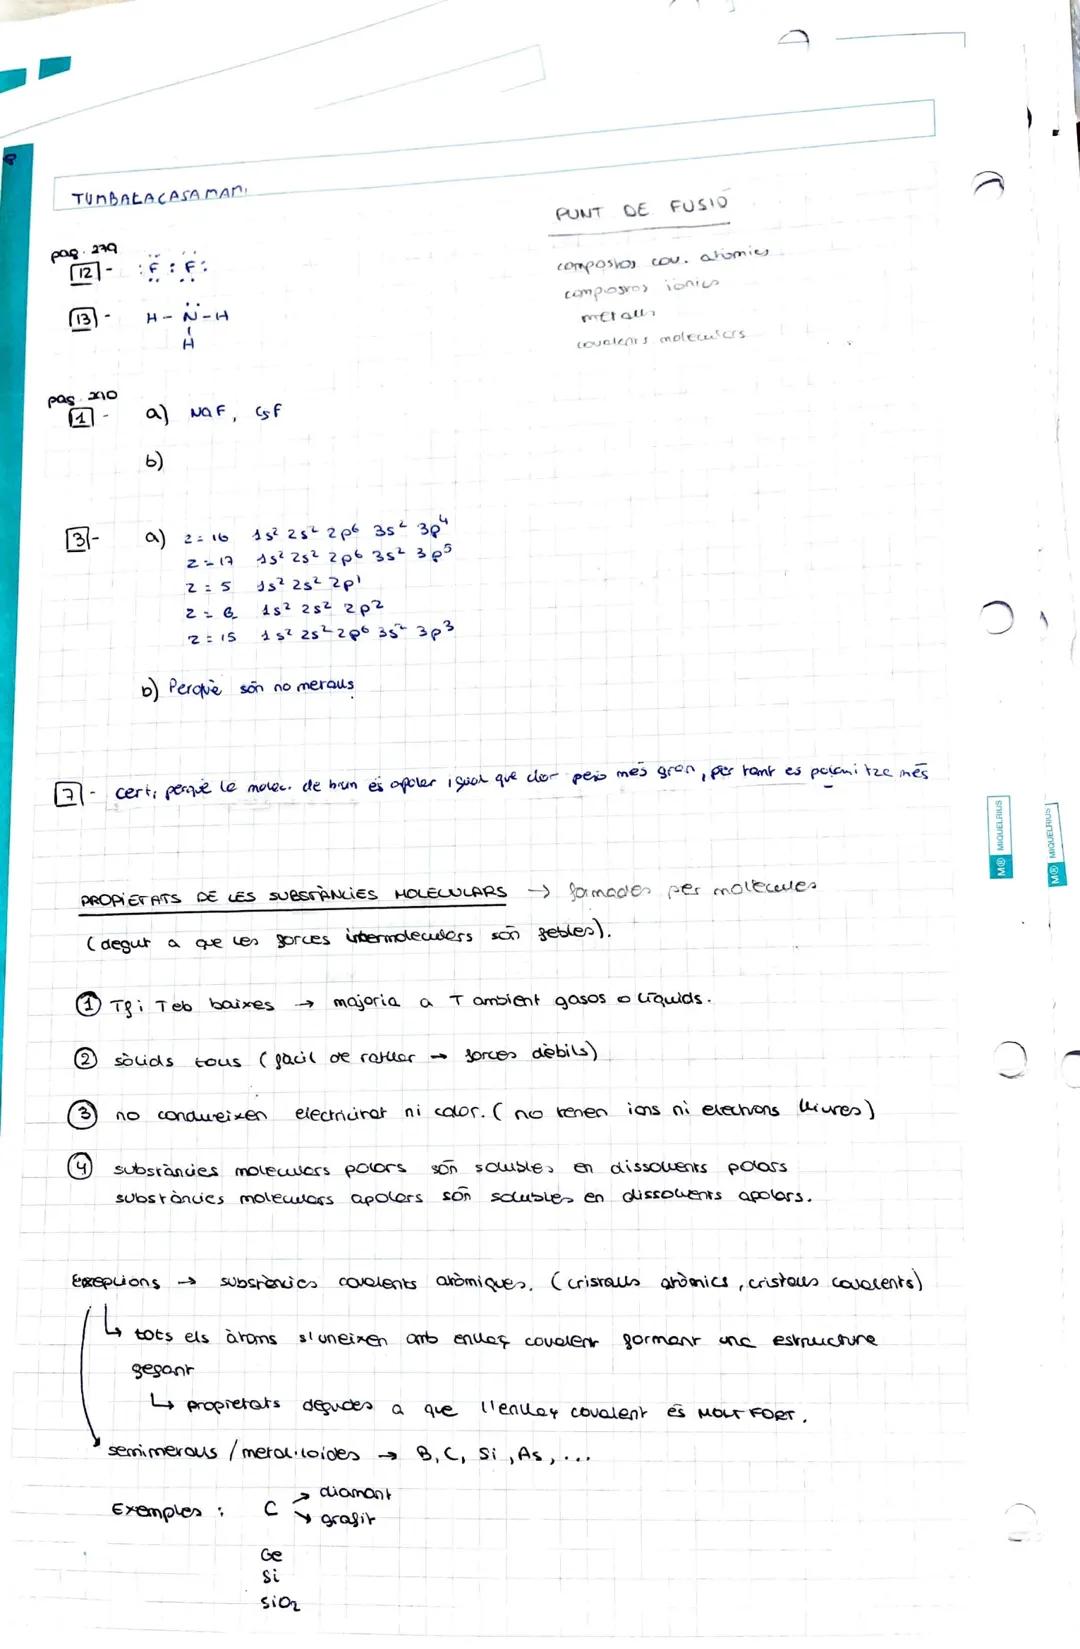 TUMBALACASAMAMI
PUNT DE FUSIÓ
compostos cov. atòmics
compostos iònics
metalls
covalents moleculars
pag. 279
12 - :F:F:
13 - H-N-H
H
pag. 280
1 - a) NaF, CsF
b)
3 - a) z=16 1s² 2s² 2p⁶ 3s² 3p⁴
z=17 1s² 2s² 2p⁶ 3s² 3p⁵
z=5 1s² 2s² 2p¹
z=6 1s² 2s² 2p²
z=15 1s² 2s² 2p⁶ 3s² 3p³
b) Perquè són no metalls
7 - cert, perquè la molec. de brom és apolar igual que clor però més gran, per tant es polaritza més
PROPIETATS DE LES SUBSTÀNCIES MOLECULARS → formades per molècules
(degut a que les forces intermoleculars són febles).
① Tf i Teb baixes → majoria a T ambient gasos o líquids.
② sòlids tous (fàcil de ratllar → forces dèbils)
③ no condueixen electricitat ni calor. (no tenen ions ni electrons lliures)
④ substàncies moleculars polars són solubles en dissolvents polars
substàncies moleculars apolars són solubles en dissolvents apolars.
Exepcions → substàncies covalents atòmiques. (cristalls atòmics, cristalls covalents)
↳ tots els àtoms s'uneixen amb enllaç covalent formant una estructura
gegant
↳ propietats degudes a que l'enllaç covalent és MOLT FORT.
semimetalls / metal·loides → B, C, Si, As, ...
Exemples : C → diamant
↘ grafit
Ge
Si
SiO₂
M® MIQUELRIUS
M® MIQUELRIUS